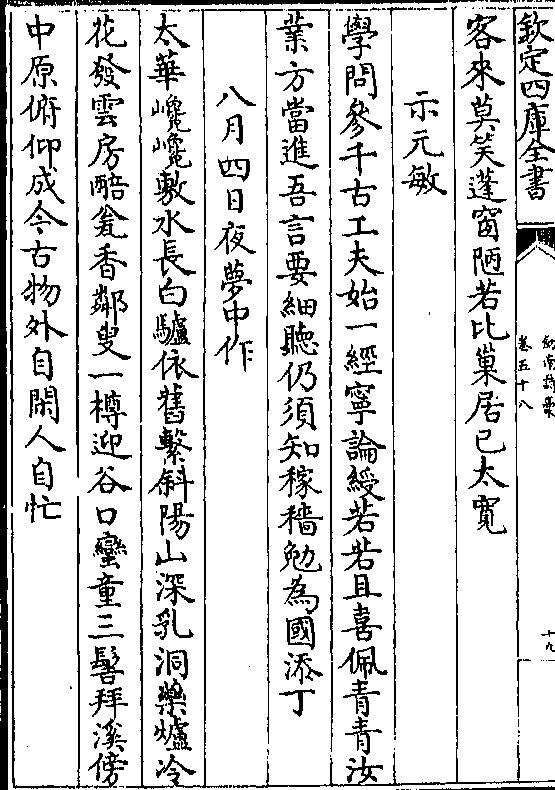 欽定四庫全書
劍南詩槀
卷五十八
十九
客來莫笑蓬窗陋若比巢居已太寬
示元敏
學問參千古工夫始一經寧論綬若若且喜佩青青汝
業方當進吾言要細聽仍須知稼穡勉為國添丁
八月四日夜夢中作
太華巉巉敷水長白驢依舊繫斜陽山深乳洞藥爐冷
花發雲房醅瓮香鄰叟一樽迎谷口蠻童三髻拜溪傍
中原俯仰成今古物外自閑人自忙